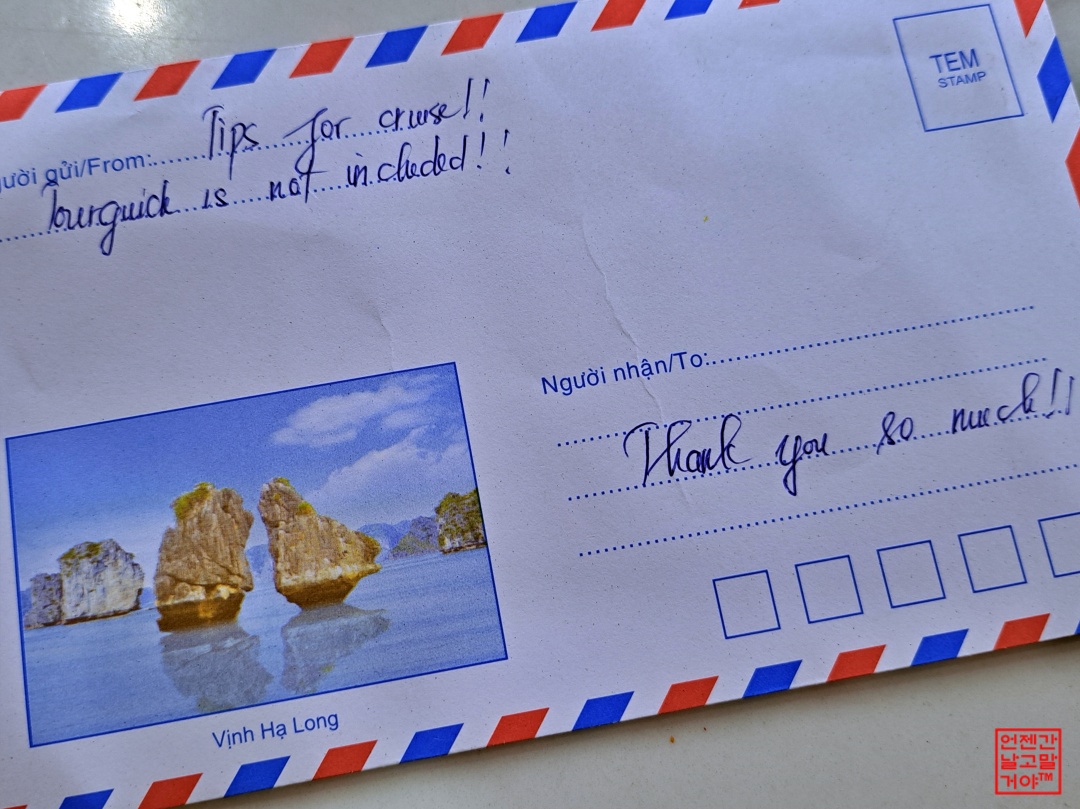 TEM
STAMP
Tips for cruise!!
ười gửi/From:
Tourguick is not incheded!!
Người nhận/To:
Thank you so much!!
Vịnh Hạ Long
언젠간
날고말
거야™